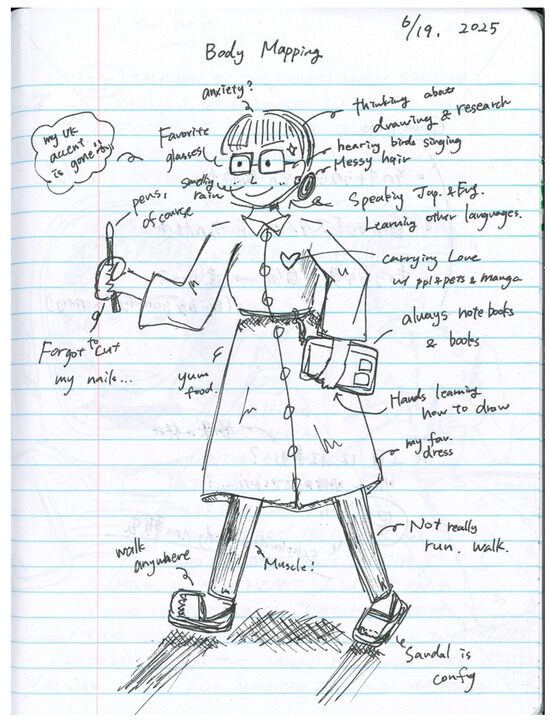 6/19. 2025
Body Mapping
anxiety?
thinking about
drawing & research
my UK
accent
is gone
Favorite
glasses
hearing birds singing
Messy hair
smelling
rain
pens,
of course
Speaking Jap. & Eng.
Learning other languages.
carrying Love
w/ ppl & pets & manga
always notebooks
& books
Forgot to cut
my nails...
yum
food.
Hands learning
how to draw
my fav.
dress
Not really
run. walk.
walk
anywhere
Muscle!
Sandal is
comfy